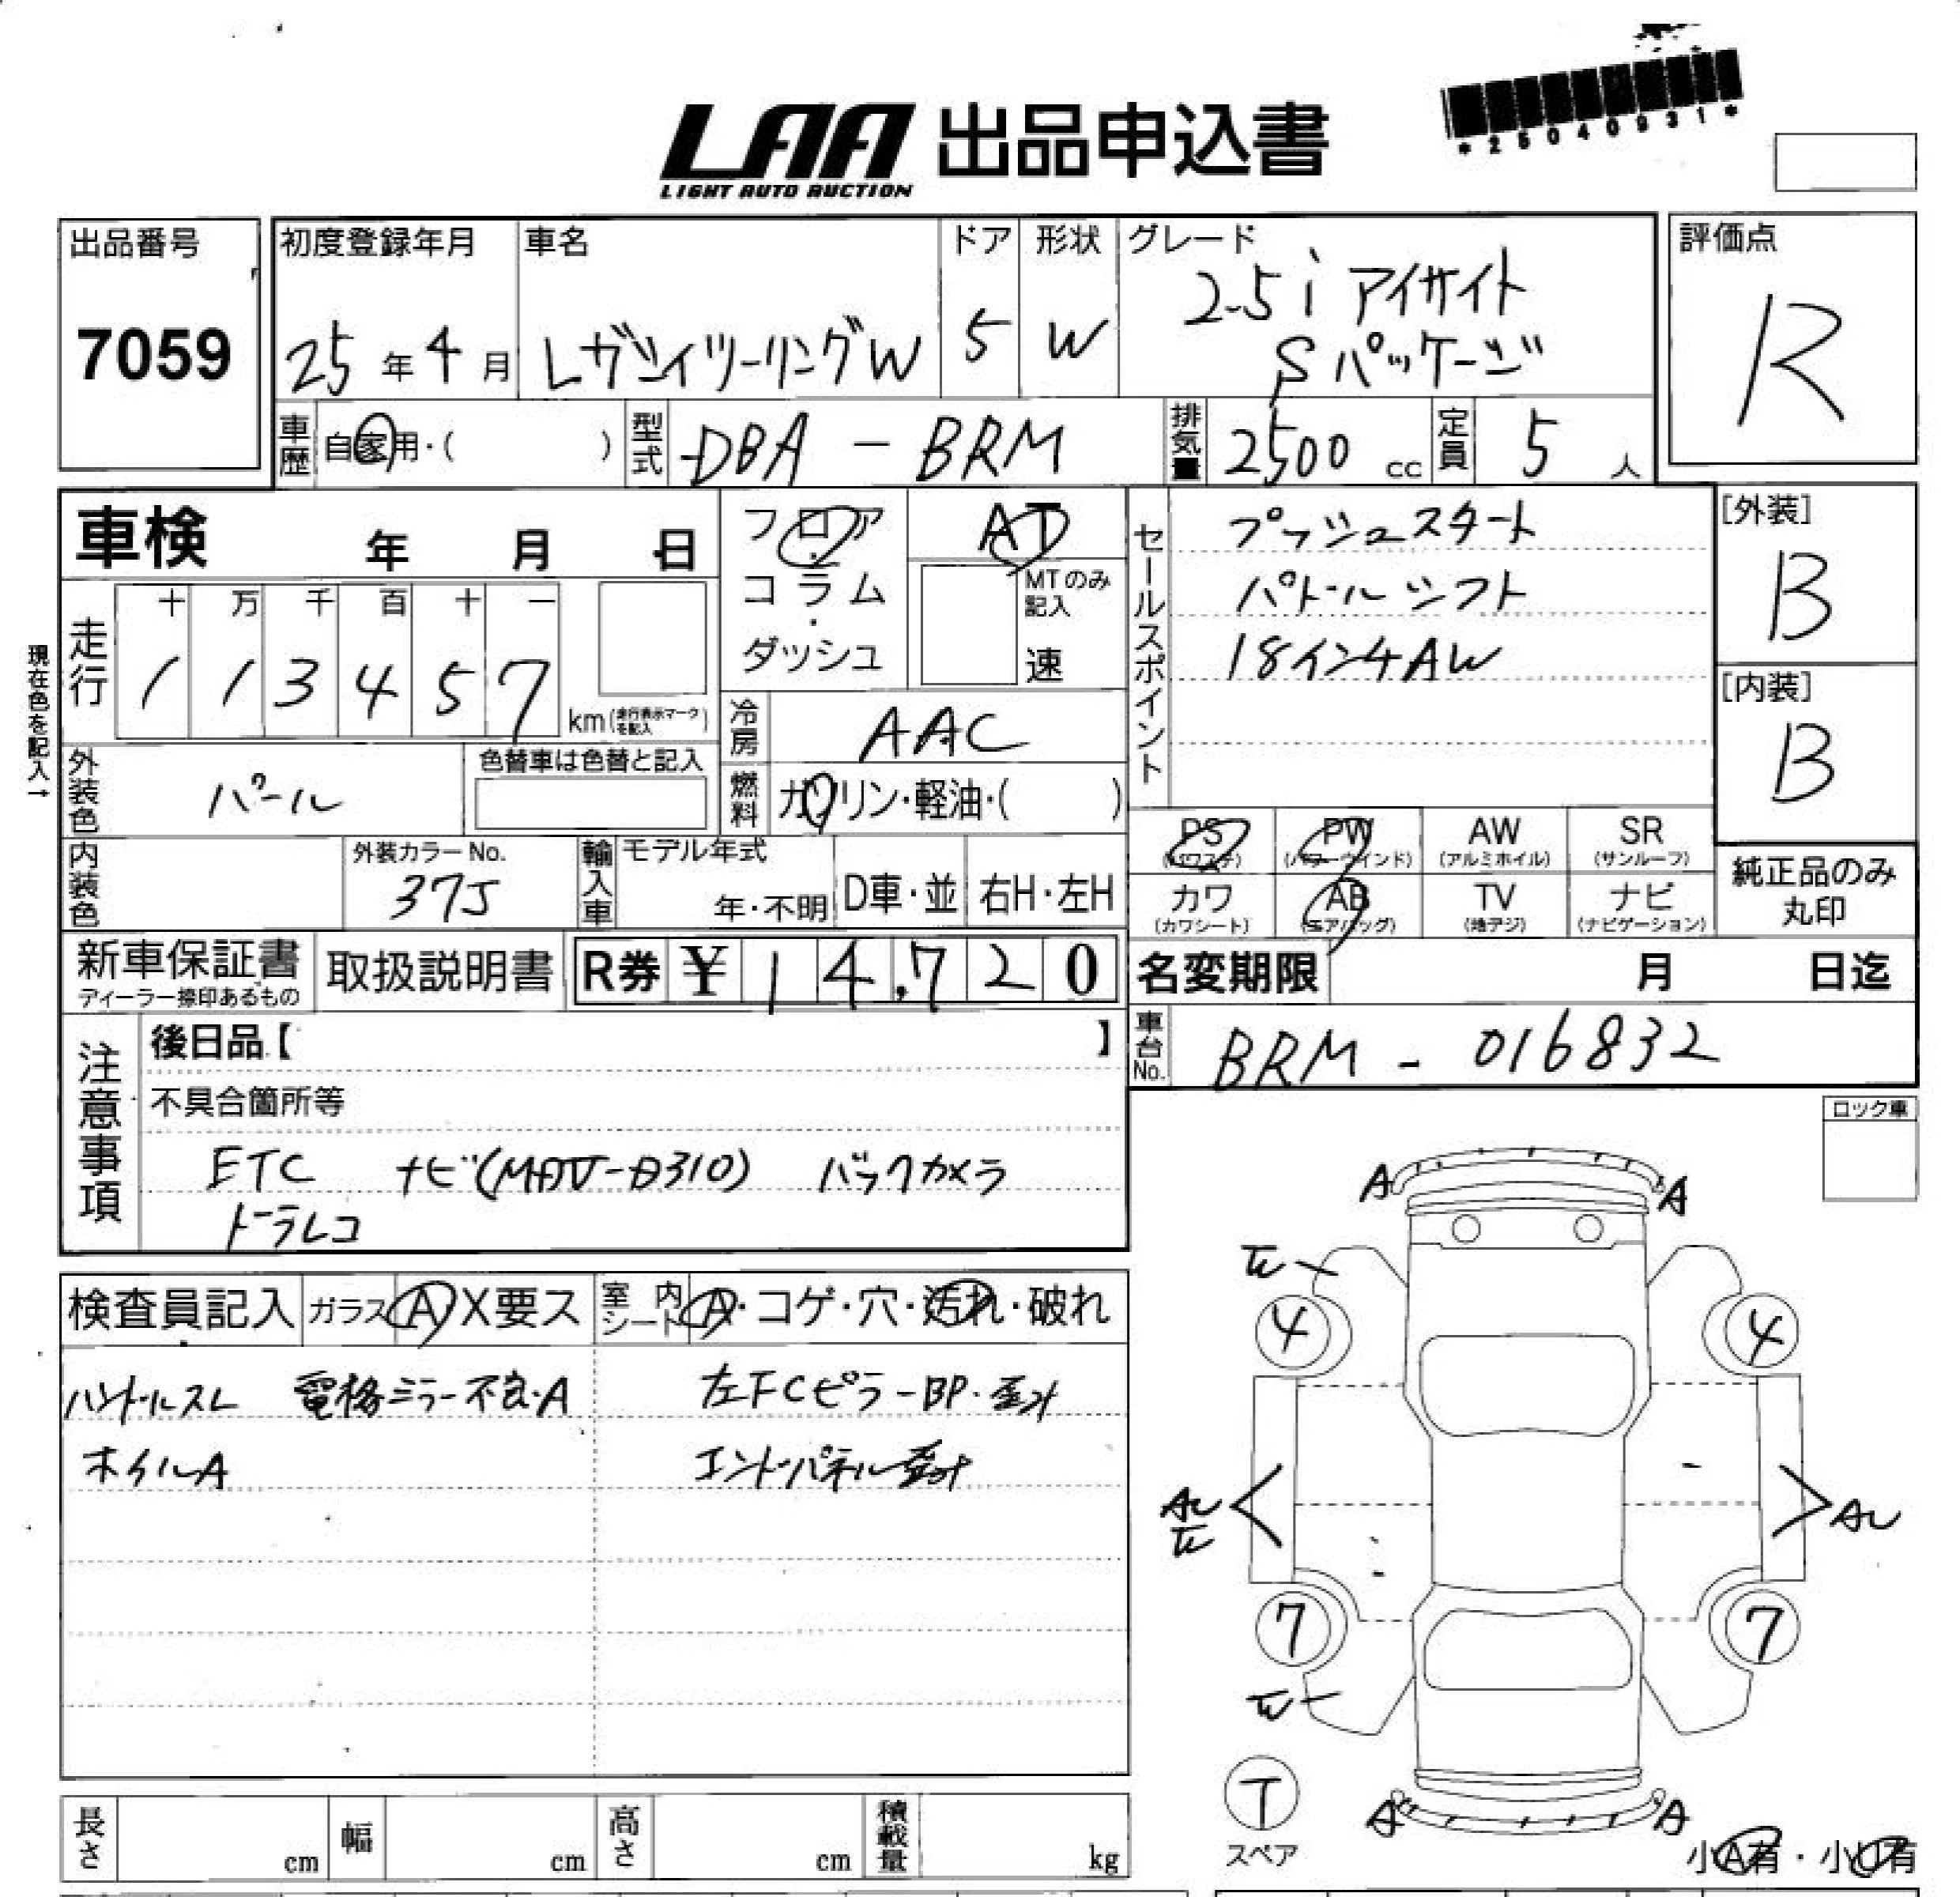 *25040931*
LAA 出品申込書
LIGHT AUTO AUCTION
出品番号
7059
初度登録年月
25年4月
車名
レガシィツーリングW
ドア
5
形状
W
グレード
2.5i アイサイト
Sパッケージ
評価点
R
車歴 自家用・( )
型式 DBA - BRM
排気量 2500 cc
定員 5 人
車検 年 月 日
現在色を記入→
走行
十 万 千 百 十 一
1 1 3 4 5 7 km(走行表示マークを記入)
フロア・
コラム・
ダッシュ
AT
MTのみ記入
速
冷房 AAC
燃料 ガソリン・軽油・( )
セールスポイント
プッシュスタート
パドルシフト
18インチAW
[外装]
B
[内装]
B
外装色 パール
色替車は色替と記入
内装色
外装カラーNo.
37J
輸入車
モデル年式
年・不明
D車・並
右H・左H
PS (パワステ)
PW (パワーウインド)
AW (アルミホイル)
SR (サンルーフ)
カワ (カワシート)
AB (エアバッグ)
TV (地デジ)
ナビ (ナビゲーション)
純正品のみ
丸印
新車保証書
ディーラー捺印あるもの
取扱説明書
R券 ¥ 14,720
名変期限 月 日迄
車台No. BRM - 016832
注意事項
後日品【 】
不具合箇所等
ETC ナビ(MAX-8310) バックカメラ
ドラレコ
ロック車
検査員記入
ガラス A X要ス
室内シート A・コゲ・穴・汚れ・破れ
ハンドルスレ 電格ミラー不良・A
ホイルA
左FCピラーBP・歪み
エンドパネル歪み
A
A
4
4
7
7
T
スペア
A
A
小A有・小U有
長さ cm
幅 cm
高さ cm
積載量 kg